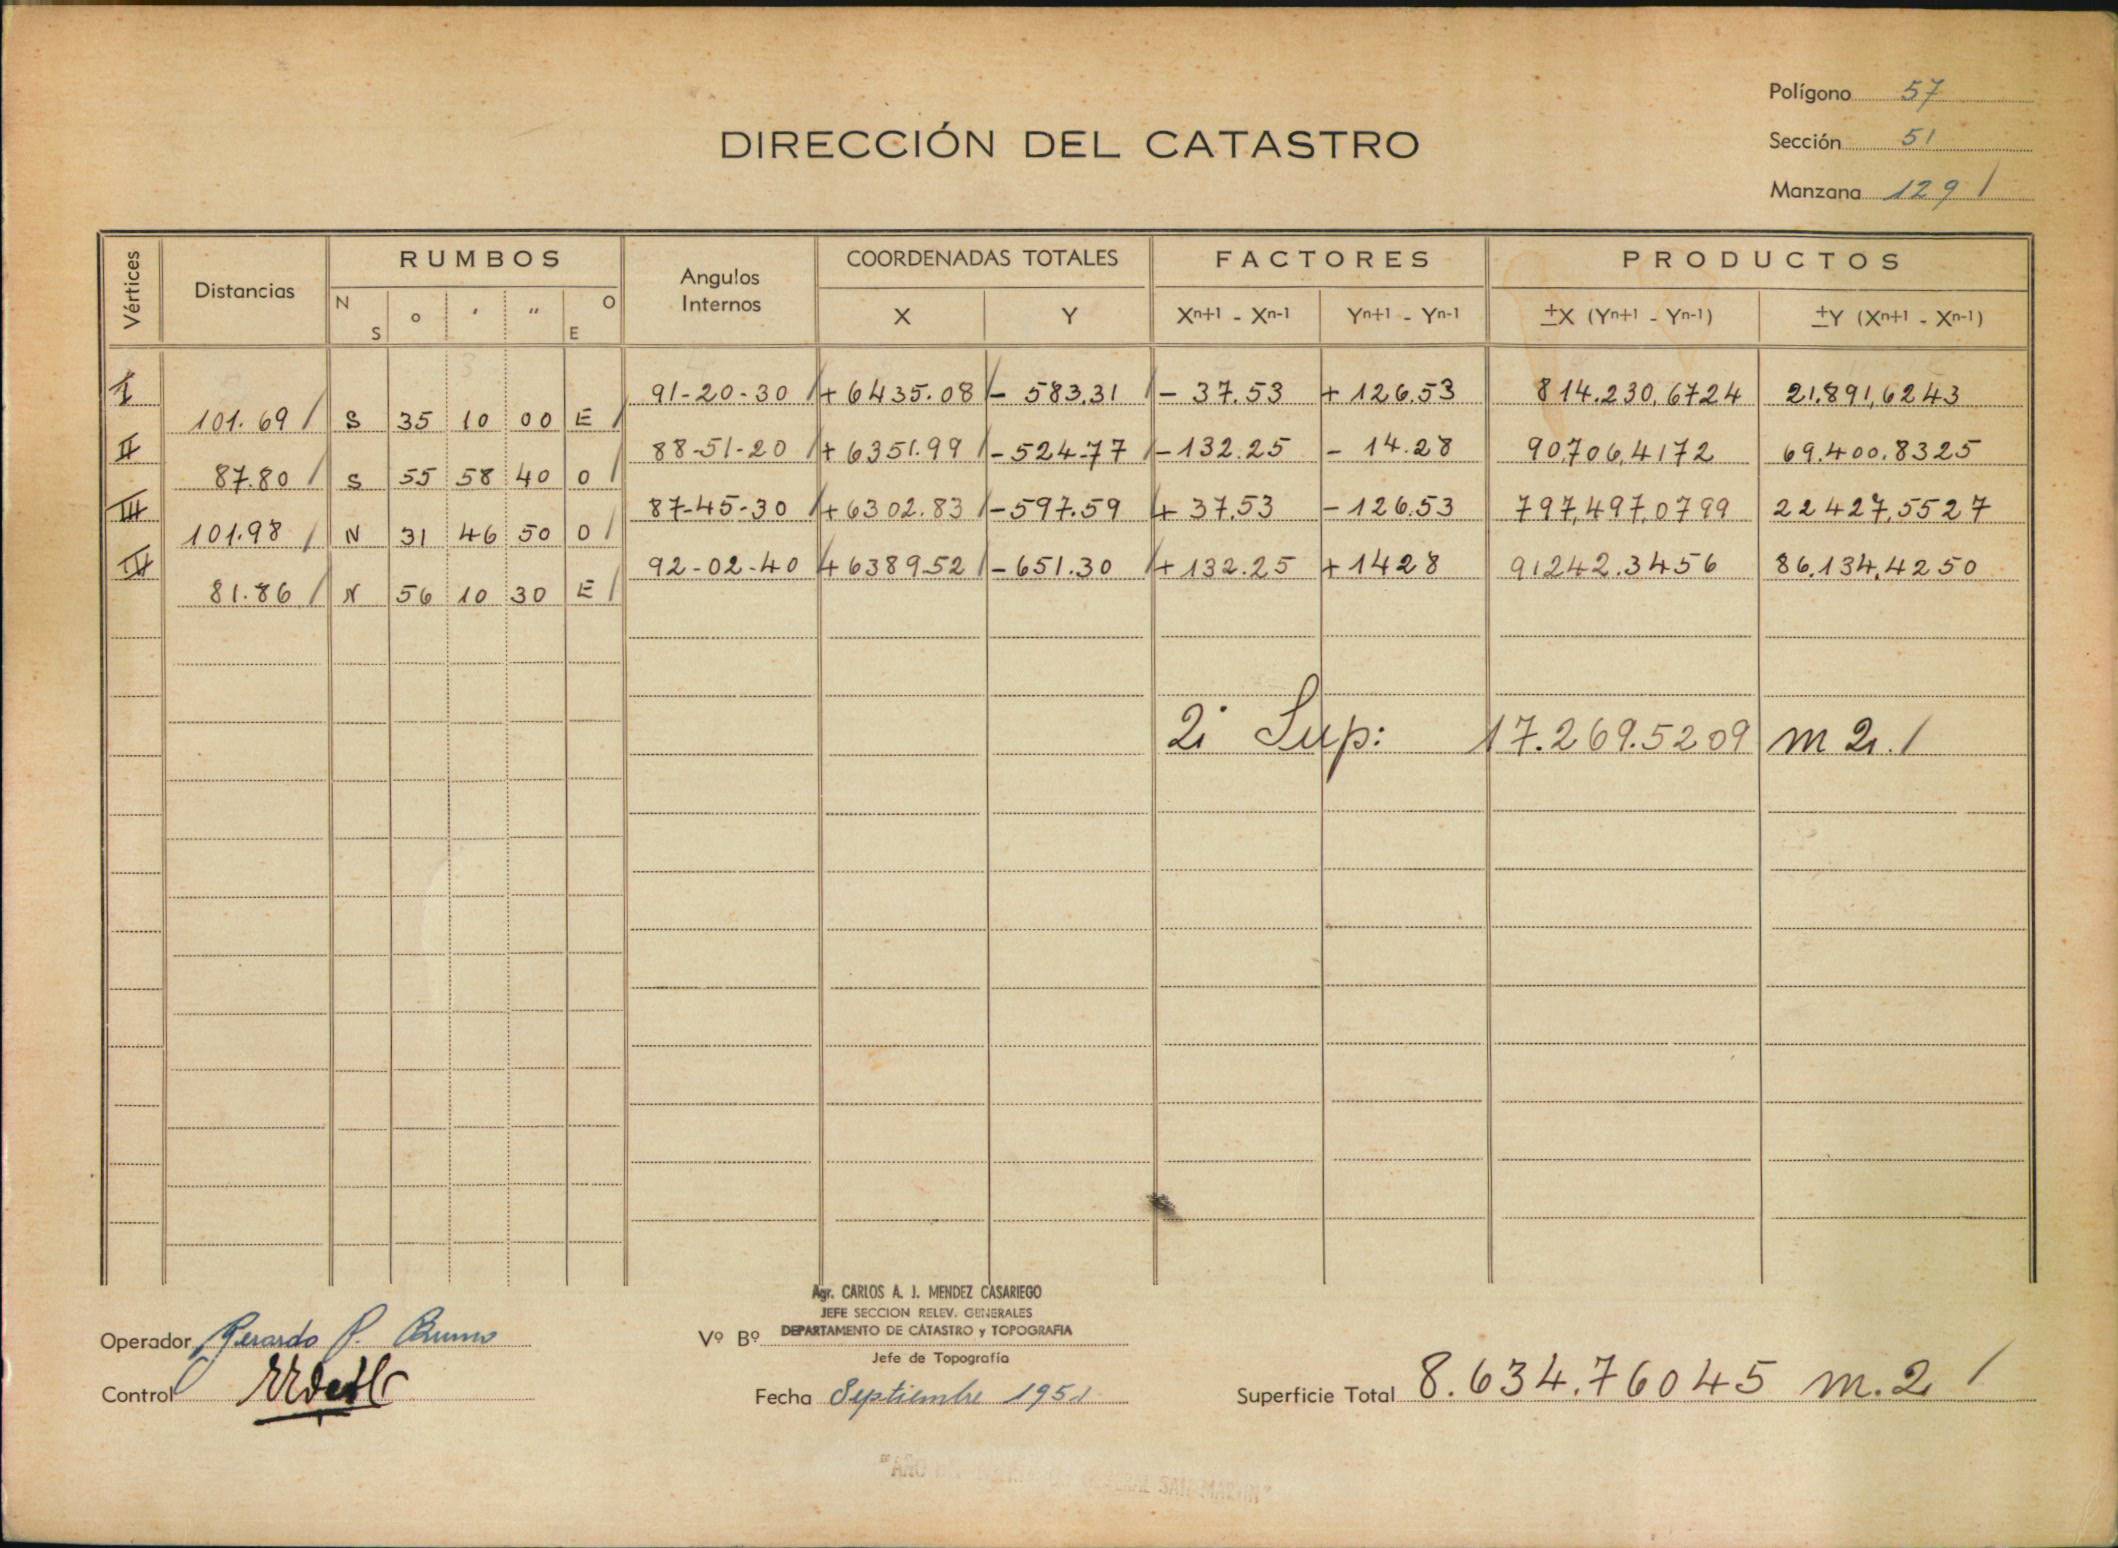 Polígono 57
DIRECCIÓN DEL CATASTRO
Sección 51
Manzana 129 /
Vértices Distancias RUMBOS Angulos Internos COORDENADAS TOTALES FACTORES PRODUCTOS
N S ° ' " O E X Y Xn+1 - Xn-1 Yn+1 - Yn-1 ±X (Yn+1 - Yn-1) ±Y (Xn+1 - Xn-1)
I 91-20-30 / + 6435.08 / - 583.31 / - 37.53 + 126.53 814.230,6724 21.891,6243
101.69 / S 35 10 00 E /
II 88-51-20 / + 6351.99 / - 524.77 / - 132.25 - 14.28 90.706,4172 69.400.8325
87.80 / S 55 58 40 O /
III 87-45-30 / + 6302.83 / - 597.59 / + 37.53 - 126.53 797.497,0799 22427,5527
101.98 / N 31 46 50 O /
IV 92-02-40 / + 6389.52 / - 651.30 / + 132.25 + 14.28 91242.3456 86.134,4250
81.86 / N 56 10 30 E /
2 Sup: 17.269.5209 m 2. /
Agr. CARLOS A. J. MENDEZ CASARIEGO
JEFE SECCION RELEV. GENERALES
Operador Gerardo P. Bruno Vº Bº DEPARTAMENTO DE CATASTRO y TOPOGRAFIA
Jefe de Topografía
Control Fecha Septiembre 1951 Superficie Total 8.634.76045 m.2 /
"AÑO GENERAL SAN MARTIN"